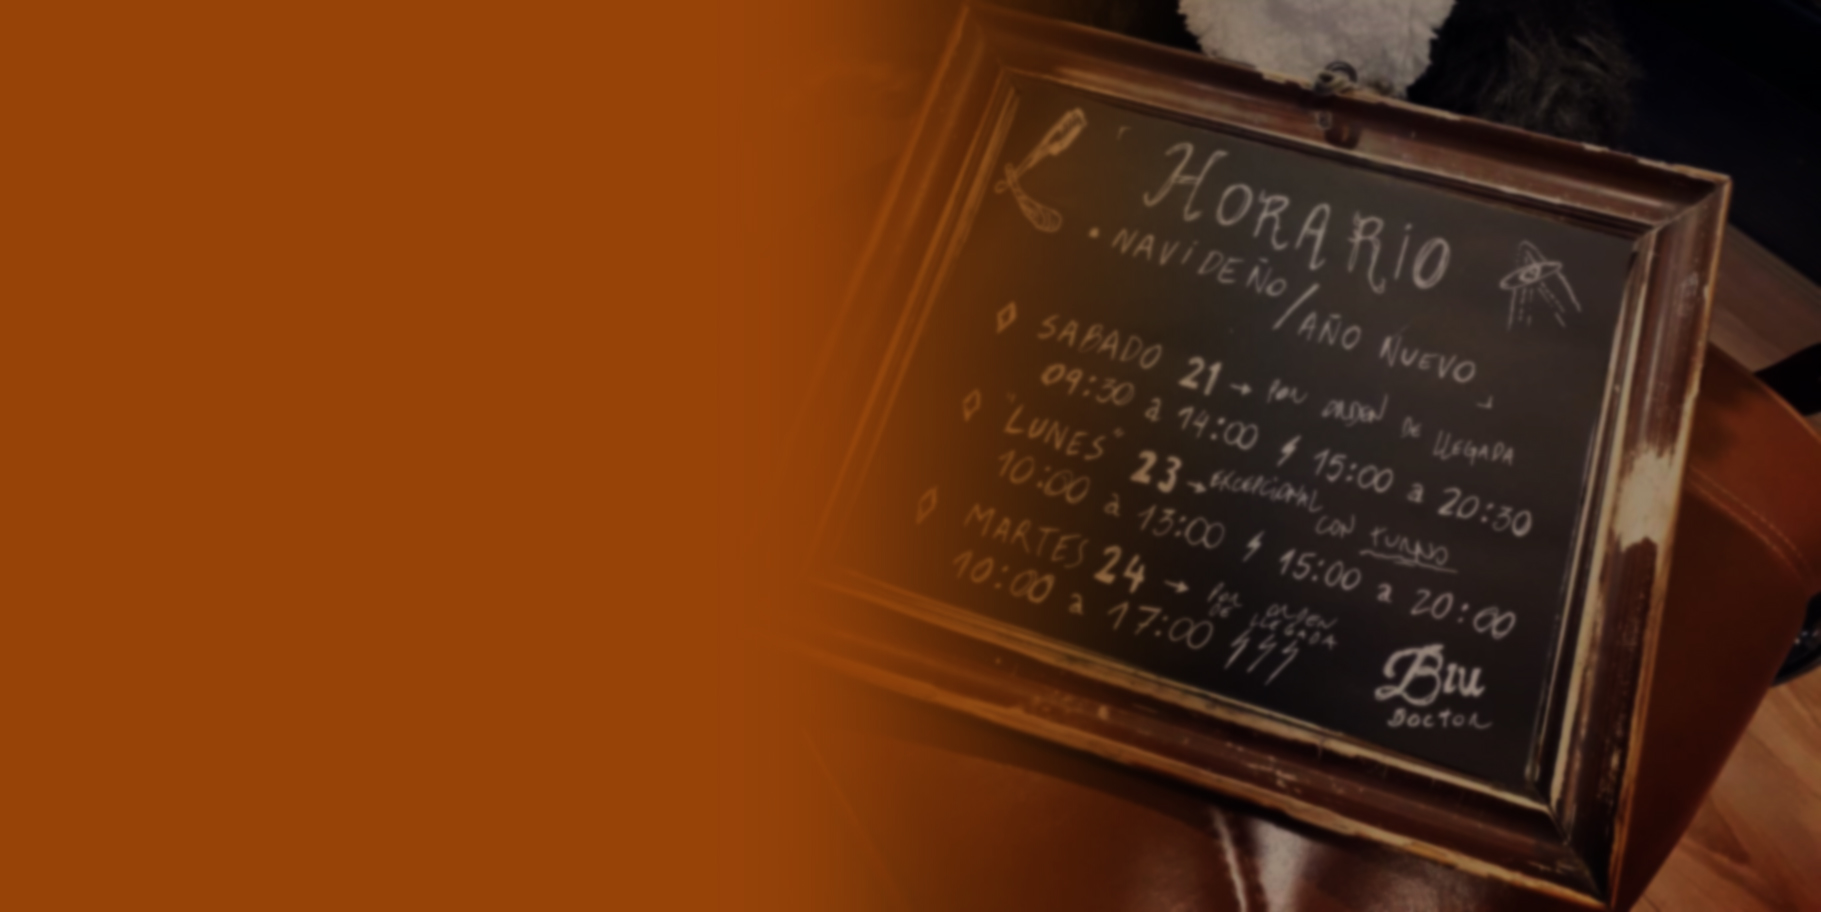 HORARIO
• NAViDEÑO/AÑO NUEVO
SABADO 21 → POR ORDEN DE LLEGADA
09:30 a 14:00 15:00 a 20:30
"LUNES" 23 → EXCEPCIONAL
CON TURNO
10:00 a 13:00 15:00 a 20:00
MARTES 24 → POR ORDEN
DE LLEGADA
10:00 a 17:00
Biu
DOCTOR